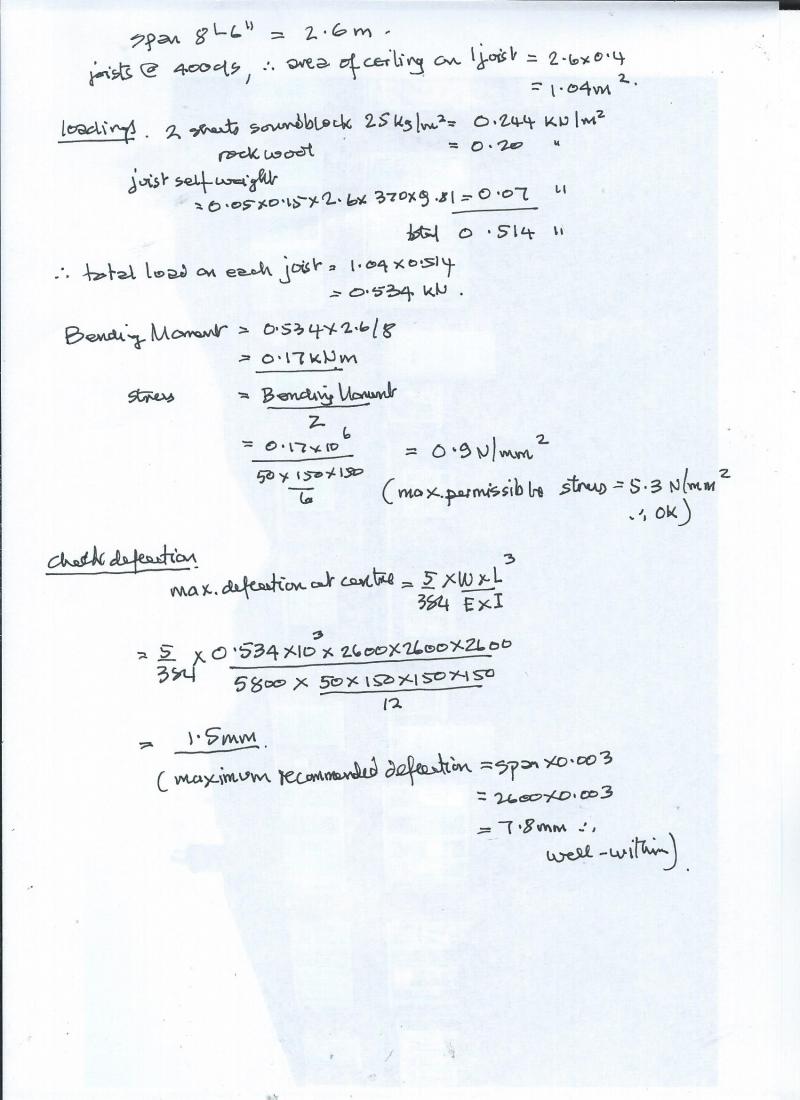 span 8'-6" = 2.6m.
joists @ 400c/s, ∴ area of ceiling on 1 joist = 2.6x0.4
= 1.04m².
loadings. 2 sheets soundblock 25kg/m² = 0.244 KN/m²
rockwool = 0.20 "
joist self weight
= 0.05x0.15x2.6x 370x9.81 = 0.07 "
total 0.514 "
∴ total load on each joist = 1.04x0.514
= 0.534 kN.
Bending Moment = 0.534x2.6/8
= 0.17kNm
stress = Bending Moment
Z
= 0.17x10⁶ = 0.9N/mm²
50x150x150
6
(max.permissible stress = 5.3 N/mm²
∴ OK)
check deflection
max. deflection at centre = 5 x WxL³
384 ExI
= 5 x 0.534x10³ x 2600x2600x2600
384 5800 x 50x150x150x150
12
= 1.5mm.
(maximum recommended deflection = span x0.003
= 2600x0.003
= 7.8mm ∴
well-within).